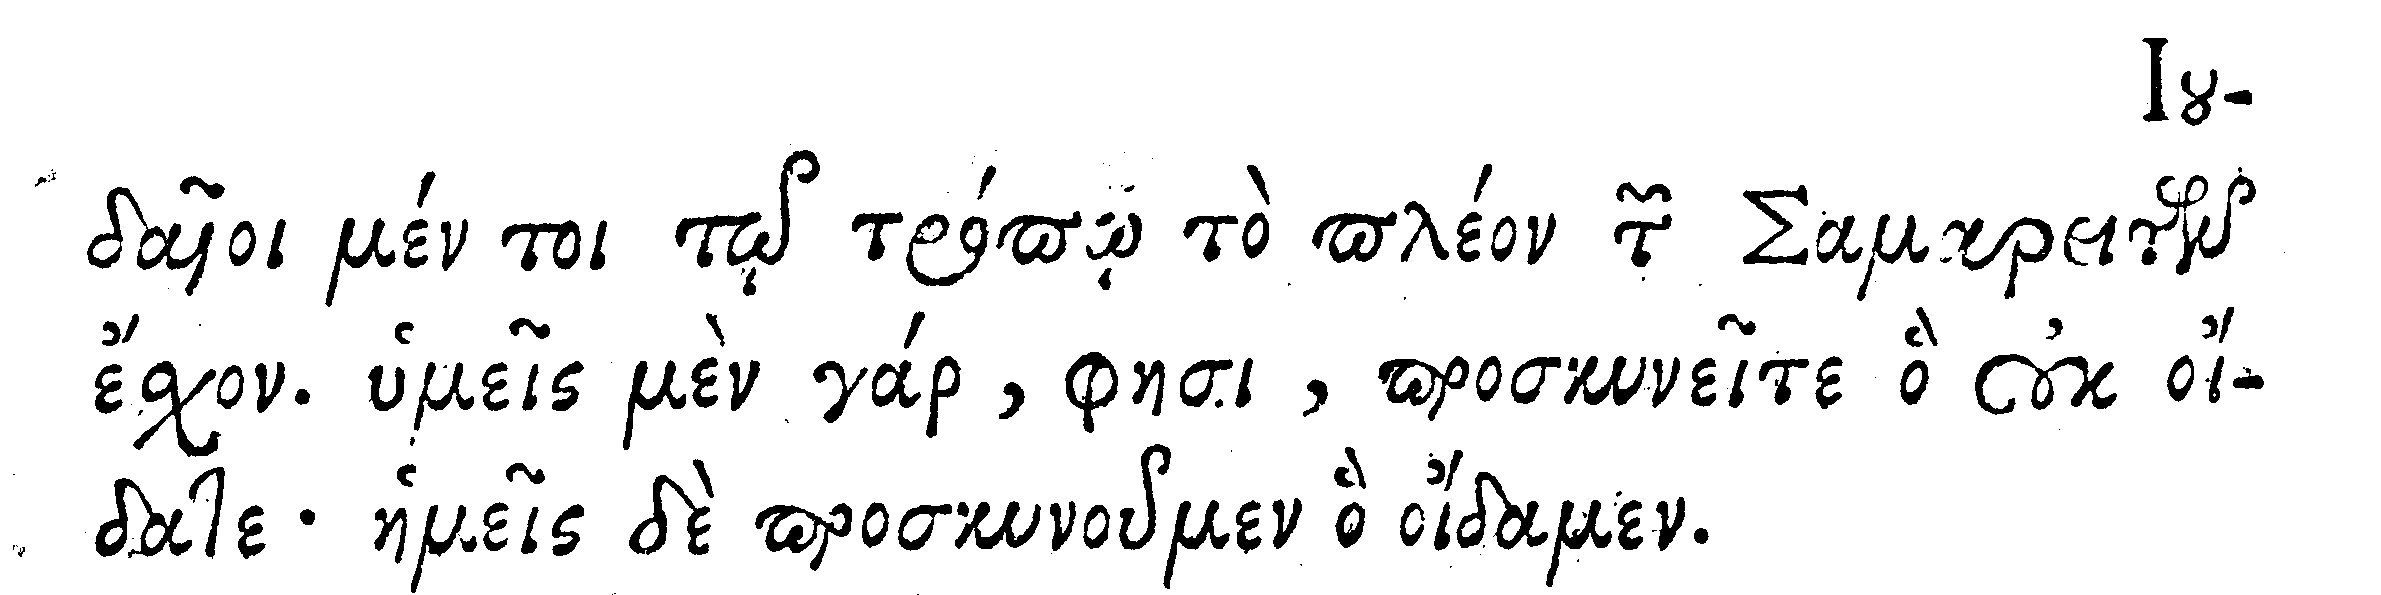 Ιου-
δαῖοι μέν τοι τῷ τρόπῳ τὸ πλέον τῶν Σαμαρειτῶν
ἔχον. ὑμεῖς μὲν γάρ, φησι, προσκυνεῖτε ὃ οὐκ οἴ-
δατε· ἡμεῖς δὲ προσκυνοῦμεν ὃ οἴδαμεν.